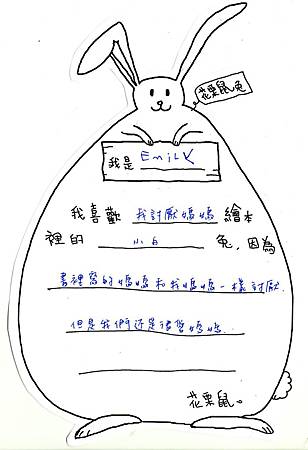 花栗鼠兔
我是 EmilK
我喜歡 我討厭媽媽 繪本
裡的 小白 兔，因為
書裡寫的媽媽和我媽媽一樣討厭.
但是我們還是很愛媽媽.
花栗鼠。